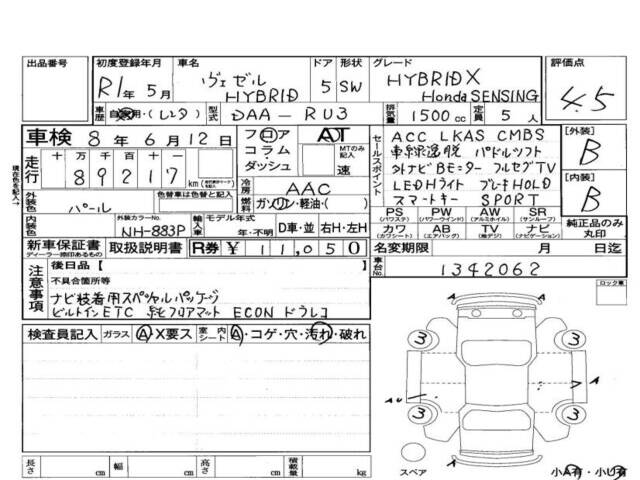 出品番号
初度登録年月
R1年 5月
車名
ヴェゼル
HYBRID
ドア
5
形状
SW
グレード
HYBRID X
Honda SENSING
評価点
4.5
車歴
自家用・(レンタ)
型式
DAA-RU3
排気量
1500cc
定員
5人
車検 8年 6月 12日
フロア
コラム
ダッシュ
AT
MTのみ記入
速
セールスポイント
ACC LKAS CMBS
車線逸脱 パドルシフト
外ナビBモニター フルセグTV
LEDHライト ブレーキHOLD
スマートキー SPORT
[外装]
B
[内装]
B
走行
十万 万 千 百 十 一
89217
km
現在色を記入→
外装色
パール
色替車は色替と記入
冷房
AAC
燃料
ガソリン・軽油・( )
PS (パワステ)
PW (パワーウインド)
AW (アルミホイル)
SR (サンルーフ)
カワ (カワシート)
AB (エアバッグ)
TV (純デジ)
ナビ (ナビゲーション)
純正品のみ丸印
内装色
外装カラーNo.
NH-883P
輸入車
モデル年式
年・不明
D車・並
右H・左H
新車保証書
ディーラー捺印あるもの
取扱説明書
R券 ¥11,050
名変期限 月 日迄
注意事項
後日品【 】
不具合箇所等
ナビ装着用スペシャルパッケージ
ビルトインETC 純正フロアマット ECON ドラレコ
車台No.
1342062
ロック車
検査員記入
ガラス
A・X要ス
室内
シート
A・コゲ・穴・汚れ・破れ
A
3
3
A
AU
A
3
3
スペア
A
小A有・小U有
長さ cm
幅 cm
高さ cm
積載量 kg